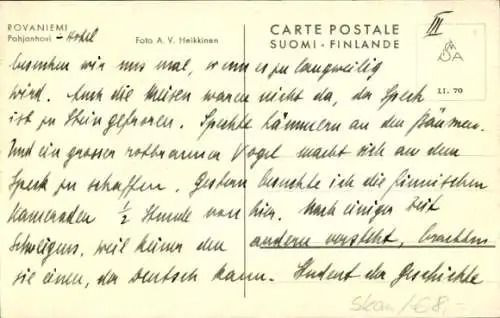 ROVANIEMI
Pohjanhovi - Hotel
Foto A. V. Heikkinen
CARTE POSTALE
SUOMI - FINLANDE
III
LI. 70
besuchen wir uns mal, wenn es zu langweilig
wird. Auch die Meisen waren nicht da, der Speck
ist zu Stein gefroren. Spechte hämmern an den Bäumen.
Und ein grosser rotbrauner Vogel macht sich an dem
Speck zu schaffen. Gestern besuchte ich die finnischen
Kameraden 1/2 Stunde von hier. Nach einiger Zeit
Schweigens, weil keiner den andern versteht, brachten
sie einen, der Deutsch kann. Student der Geschichte